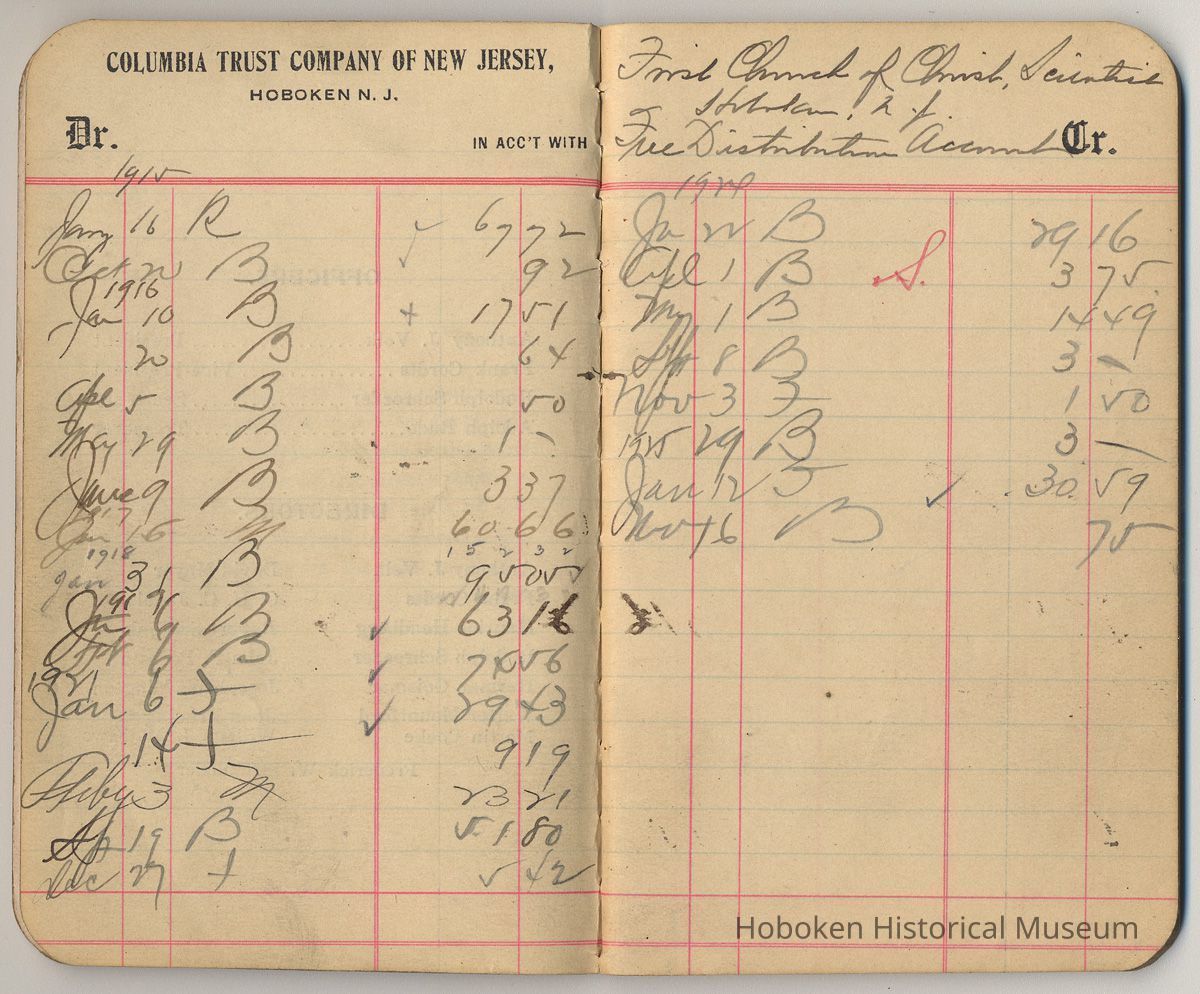 COLUMBIA TRUST COMPANY OF NEW JERSEY,
HOBOKEN N. J.
Dr.
IN ACC'T WITH
1915
Jany 16 R 67 72
Oct 22 B 92
1916
Jan 10 B + 17 51
20 B 64
Apl 5 B 50
May 29 B 1 -
June 9 B 3 37
Jan 16 M 60 66
1918
Jan 31 B 95 05
B 63 16
6 B 74 56
1921
Jan 6 J 29 43
14 J 9 19
Feby 3 M 23 21
19 B 51 80
Dec 27 J 5 42
First Church of Christ, Scientist
Hoboken, N. J.
Free Distribution Account
Cr.
1924
Ja 22 B 29 16
Apl 1 B S. 3 75
My 1 B 14 49
8 B 3 -
Nov 3 J 1 50
29 B 3 -
1925
Jan 12 J 30 59
Nov 16 B 75
Hoboken Historical Museum